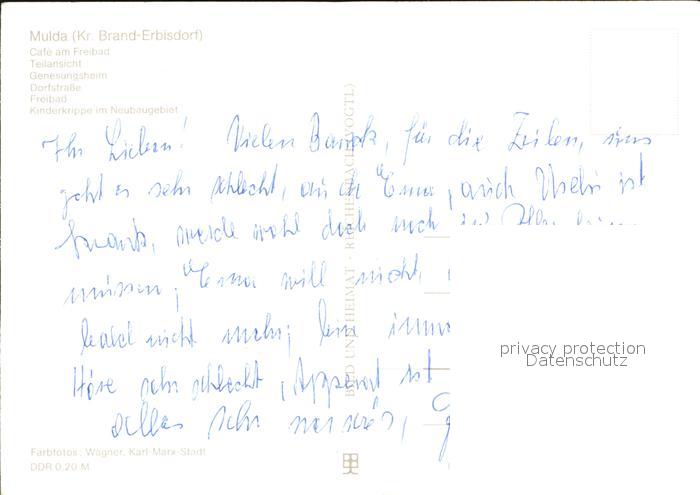 Mulda (Kr. Brand-Erbisdorf)
Café am Freibad
Teilansicht
Genesungsheim
Dorfstraße
Freibad
Kinderkrippe im Neubaugebiet
Ihr Lieben! Vielen Dank, für die Zeilen, uns
geht es sehr schlecht, auch Erna, auch Uschi ist
krank, werde wohl doch noch
müssen, Erna will nicht
bald nicht mehr, bin immer
Höre sehr schlecht, Apparat ist
alles sehr nervös,
BILD UND HEIMAT · REICHENBACH (VOGTL)
privacy protection
Datenschutz
Farbfotos: Wagner, Karl-Marx-Stadt
DDR 0,20 M